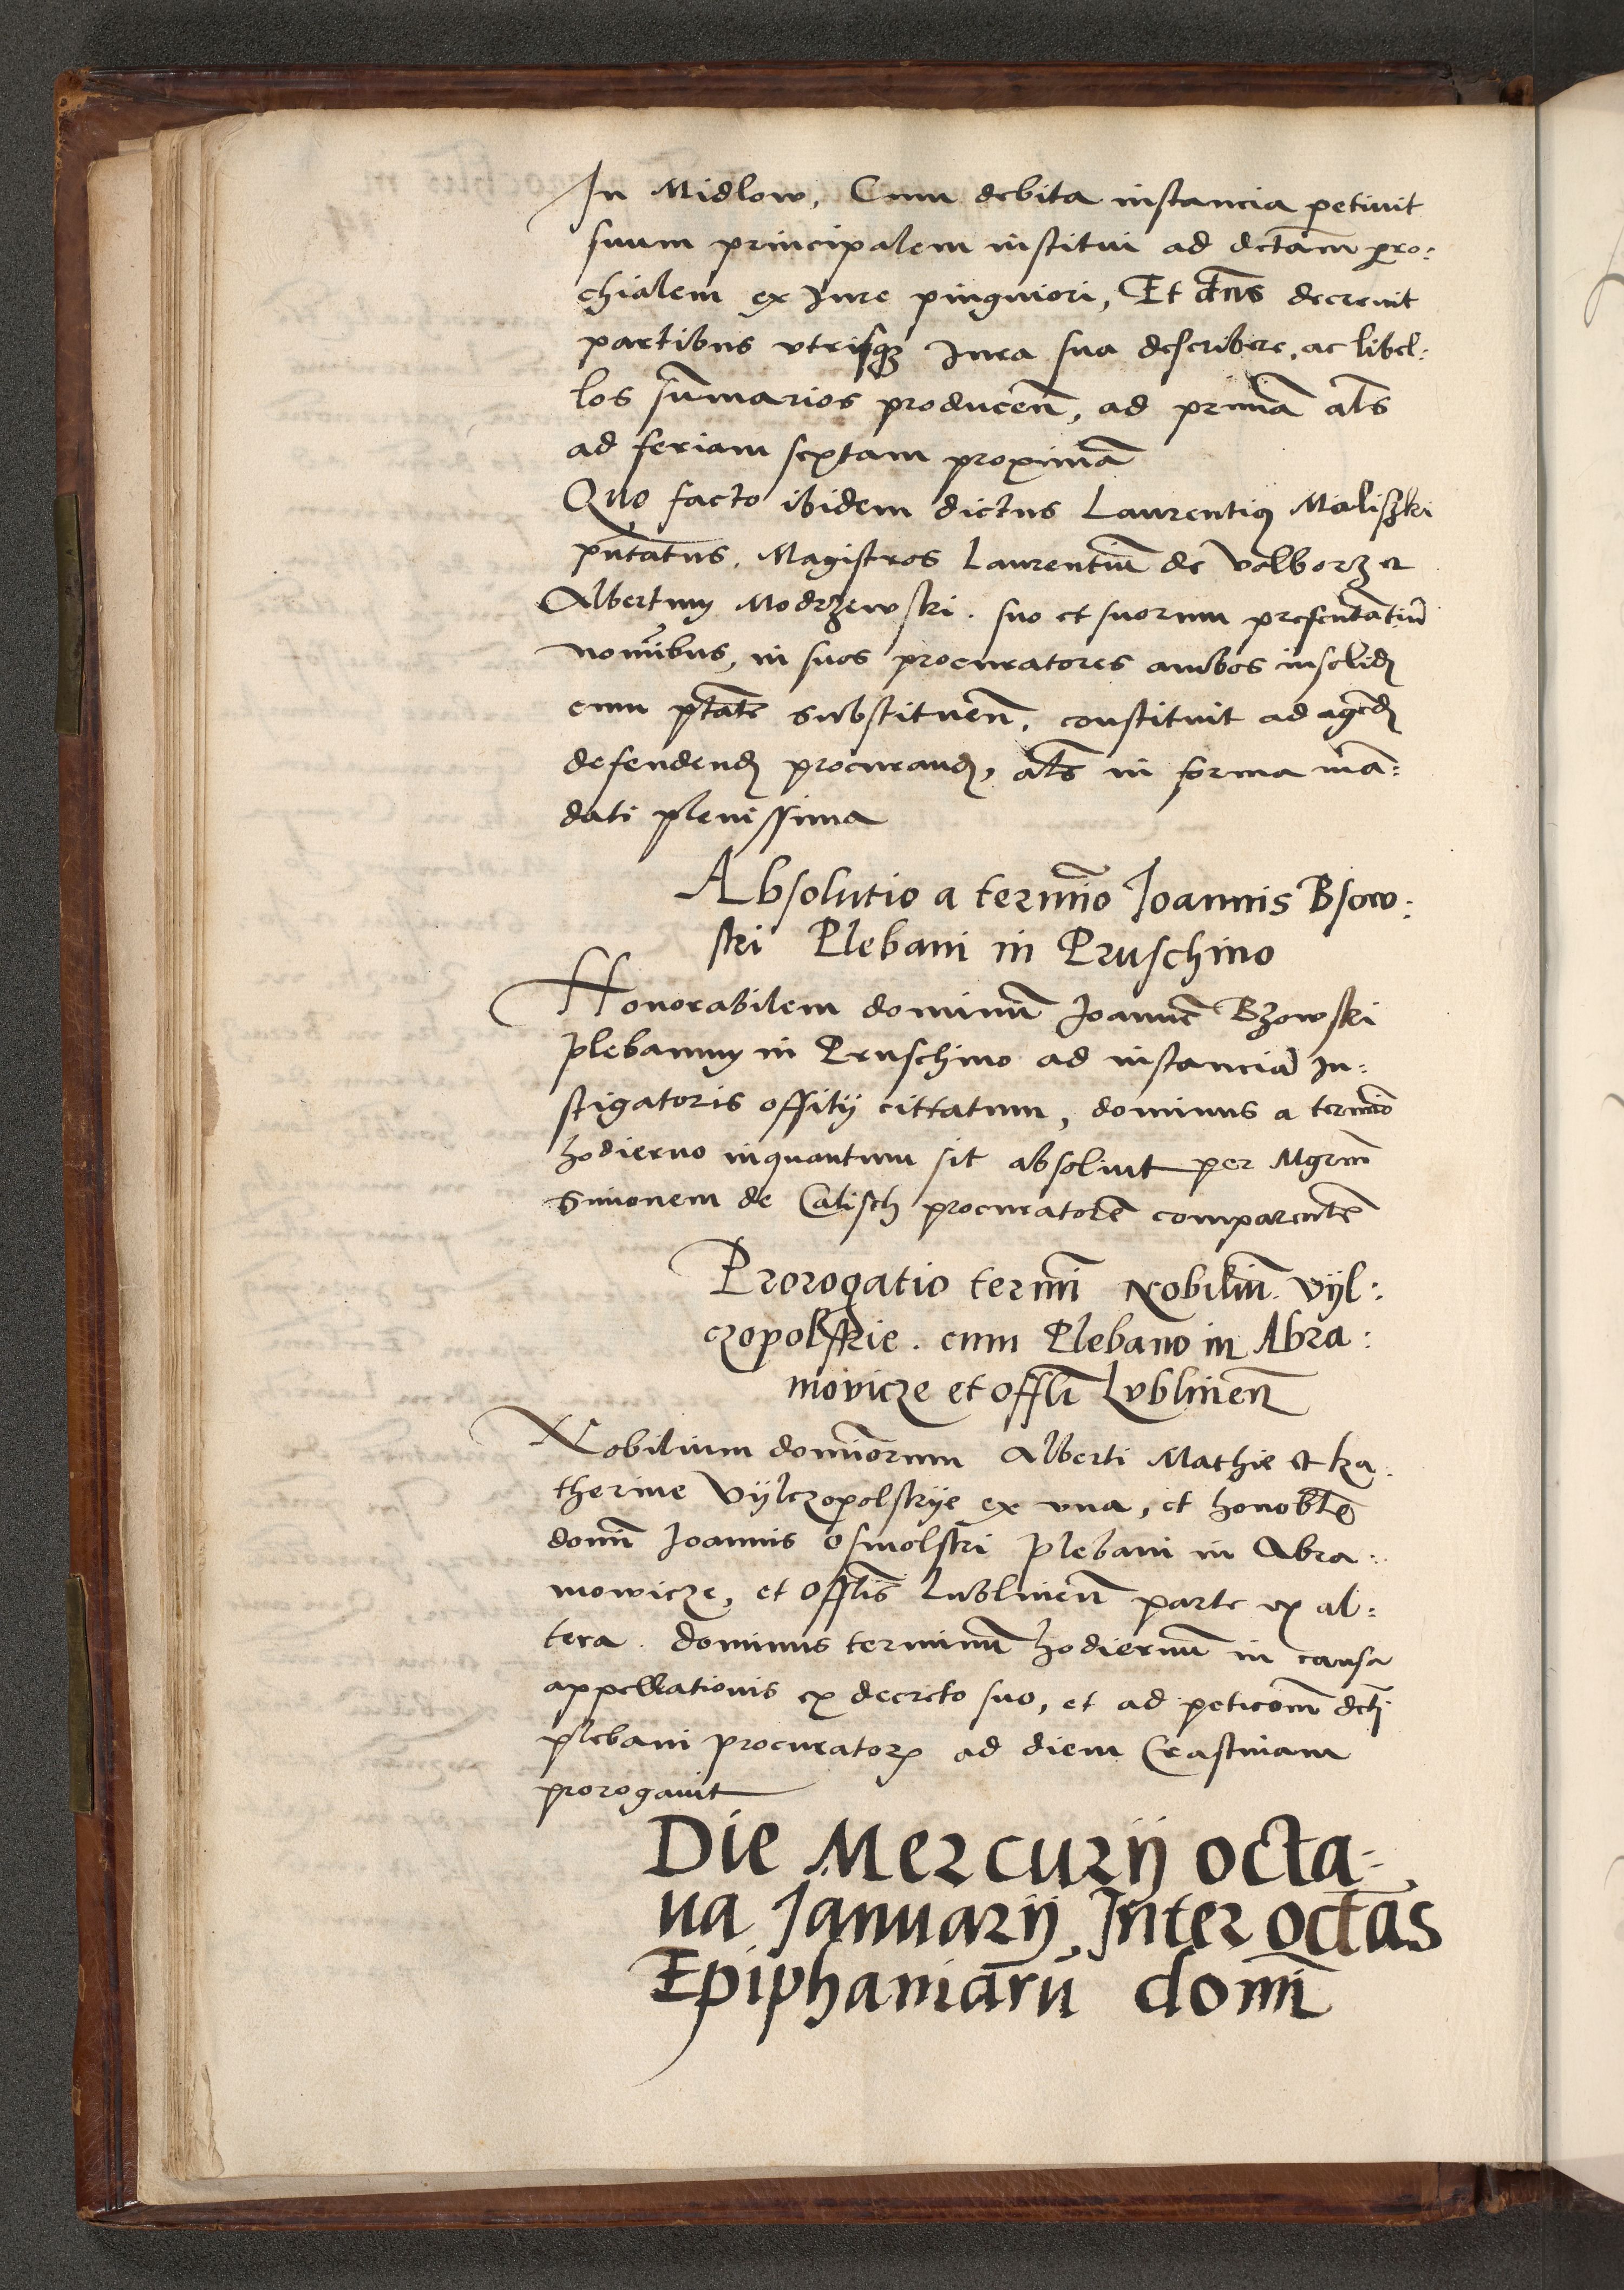 In Midlow, Cum debita instancia petiuit
suum principalem institui ad dctam pro:
chialem ex Iure pinguiori, Et dns decreuit
partibus vtrisq3 Iura sua describere, ac libel:
los sumarios producen, ad prima als
ad feriam sextam proxima
Quo facto ibidem dictus Laurentius Maliszki
pntatus, Magistros Laurentiu de Volborz et
Albertum Modrzewski. suo et suorum presentatiu
nomibus, in suos procuratores ambos insolid
cum ptate substituen, constituit ad agend
defendend procurand, als in forma ma:
dati plenissima
Absolutio a termino Ioannis Bsow:
ski Plebani in Pruschino
Honorabilem dominu Ioanne Bzowski
plebanum in Pruschino ad instancia In:
stigatoris offitij cittatum, dominus a termino
hodierno inquantum sit absoluit per Mgrm
Simonem de Calisch procuratore comparente
Prorogatio termi Nobiliu. Vijl:
czopolskie. cum Plebano in Abra:
mouicze et offli Lublinen
Nobilium dominorum Alberti Mathie et Ka:
therine Vijlczopolskije ex vna, et honoblis
domi Ioannis Osmolski plebani in Abra:
mowicze, etOfflis Lublinen parte ex al:
tera. dominus terminu hodiernu in causa
appellationis ex decreto suo, et ad peticom dcti
plebani procurator ad diem Crastinam
prorogauit
Die Mercurij octa-
ua Januarij, Inter octas
Epiphaniaru domi